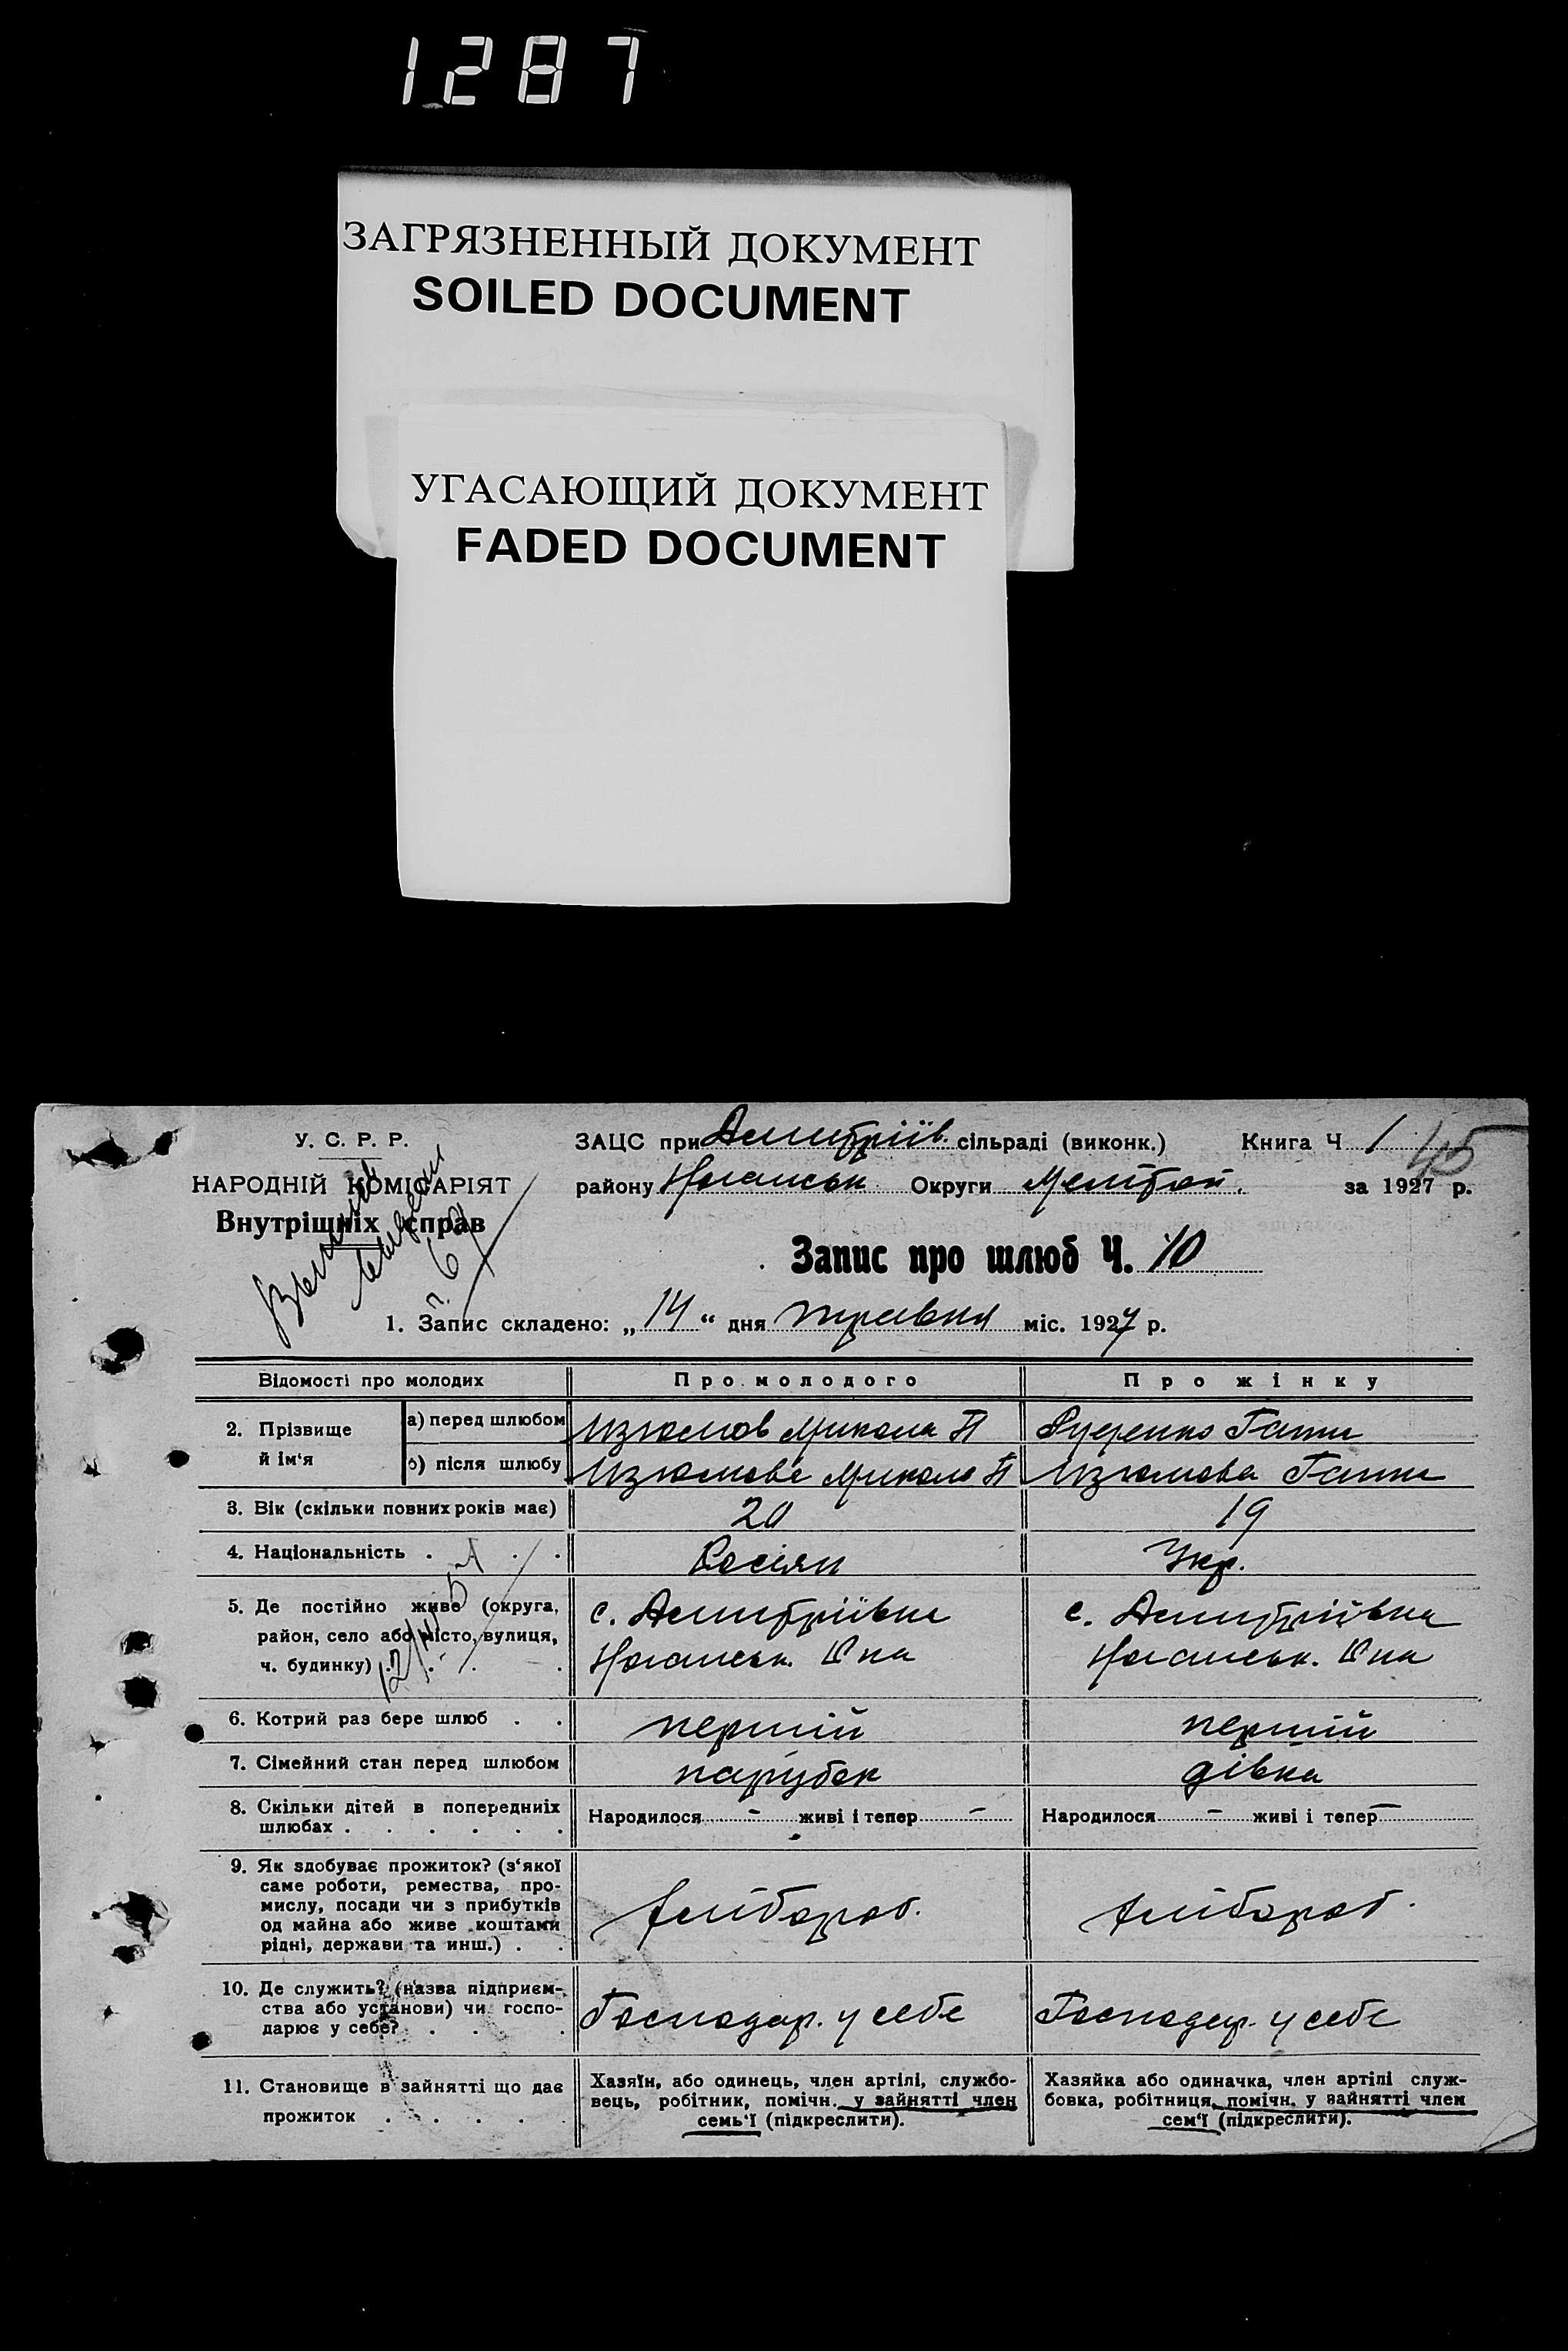 1287
ЗАГРЯЗНЕННЫЙ ДОКУМЕНТ
SOILED DOCUMENT
УГАСАЮЩИЙ ДОКУМЕНТ
FADED DOCUMENT
У. С. Р. Р.
НАРОДНІЙ КОМІСАРІЯТ
Внутрішніх справ
ЗАЦС при Дмитріїв. сільраді (виконк.) Книга Ч 1
45
району Ногайськ Округи Меліт. за 1927 р.
Запис про шлюб Ч. 10
1. Запис складено: „14“ дня травня міс. 1927 р.
Відомості про молодих Про молодого Про жінку
2. Прізвище й ім'я
а) перед шлюбом Изюмов Микола П Гання
б) після шлюбу Изюмов Микола П Изюмова Гання
3. Вік (скільки повних років має) 20 19
4. Національність . . . Росіян Укр.
5. Де постійно живе (округа, с. Дмитріївка с. Дмитріївка
район, село або місто, вулиця, Ногайськ. Ногайськ.
ч. будинку) . . . .
6. Котрий раз бере шлюб . . перший перший
7. Сімейний стан перед шлюбом парубок дівка
8. Скільки дітей в попередниіх Народилося - живі і тепер - Народилося - живі і тепер -
шлюбах . . . . . .
9. Як здобуває прожиток? (з'якої
саме роботи, ремества, про-
мислу, посади чи з прибутків
од майна або живе коштами
рідні, держави та инш.) . . Хлібороб. Хлібороб.
10. Де служить? (назва підприєм-
ства або установи) чи госпо- Господар. у себе Господар. у себе
дарює у себе? . . .
11. Становище в зайнятті що дає
прожиток . . . . .
Хазяїн, або одинець, член артілі, службо-
вець, робітник, помічн. у зайнятті член
семь'ї (підкреслити).
Хазяйка або одиначка, член артілі служ-
бовка, робітниця, помічн. у зайнятті член
сем'ї (підкреслити).